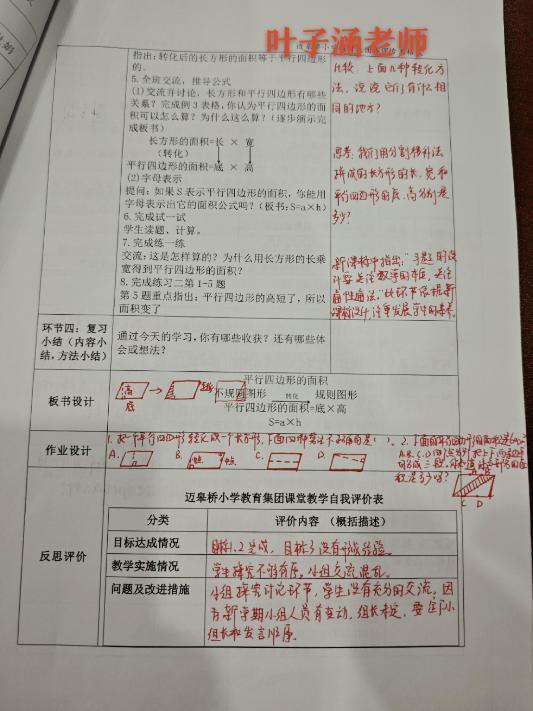 叶子涵老师
指出：转化后的长方形的面积等于平行四边形
的。
5.全班交流，推导公式
(1)交流并讨论，长方形和平行四边形有哪些
关系？完成例3表格，你认为平行四边形的面
积可以怎么算？为什么这么算？（逐步演示完
成板书）
长方形的面积=长 × 宽
（转化）
平行四边形的面积=底 × 高
(2)字母表示
提问：如果S表示平行四边形的面积，你能用
字母表示出它的面积公式吗？(板书：S=a×h)
6.完成试一试
学生读题、计算。
7.完成练一练
交流：这是怎样算的？为什么用长方形的长乘
宽得到平行四边形的面积？
8.完成练习二第1-5题
第5题重点指出：平行四边形的高短了，所以
面积变了
比较：上面几种转化方
法，说说它们有什么相
同的地方？
思考：我们用分割移补法
拼成的长方形的长、宽和
平行四边形的底、高分别是
多少？
新课标中指出："习题的设
计要关注数学的本质，关注
通性通法。"此环节依据新
课标设计，注重发展学生的素养。
环节四：复习
小结（内容小
结，方法小结）
通过今天的学习，你有哪些收获？还有哪些体
会或想法？
板书设计
平行四边形的面积
高
底
不规则图形 转化 规则图形
平行四边形的面积=底×高
S=a×h
作业设计
1.把一个平行四边形转化成一个长方形，下面四种剪法不正确的是（ ）。
A. B. 中点 中点 C. D.
2.下面
A B
C D
反思评价
迈皋桥小学教育集团课堂教学自我评价表
分类 评价内容 （概括描述）
目标达成情况 目标1.2达成，目标3没有形成经验。
教学实施情况 学生探究不够有序，小组交流混乱。
问题及改进措施 小组探究讨论环节，学生没有充分的交流，因
为新学期小组人员有变动，组长未定，要
组长和发言顺序。